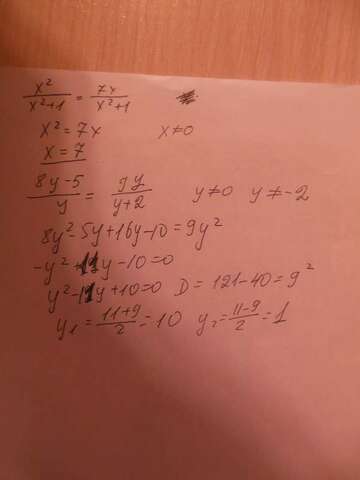 x²/(x²+1) = 7x/(x²+1)
x² = 7x x≠0
x = 7
(8y-5)/y = 9y/(y+2) y≠0 y≠-2
8y²-5y+16y-10=9y²
-y²+11y-10=0
y²-11y+10=0 D=121-40=9²
y₁=(11+9)/2=10 y₂=(11-9)/2=1